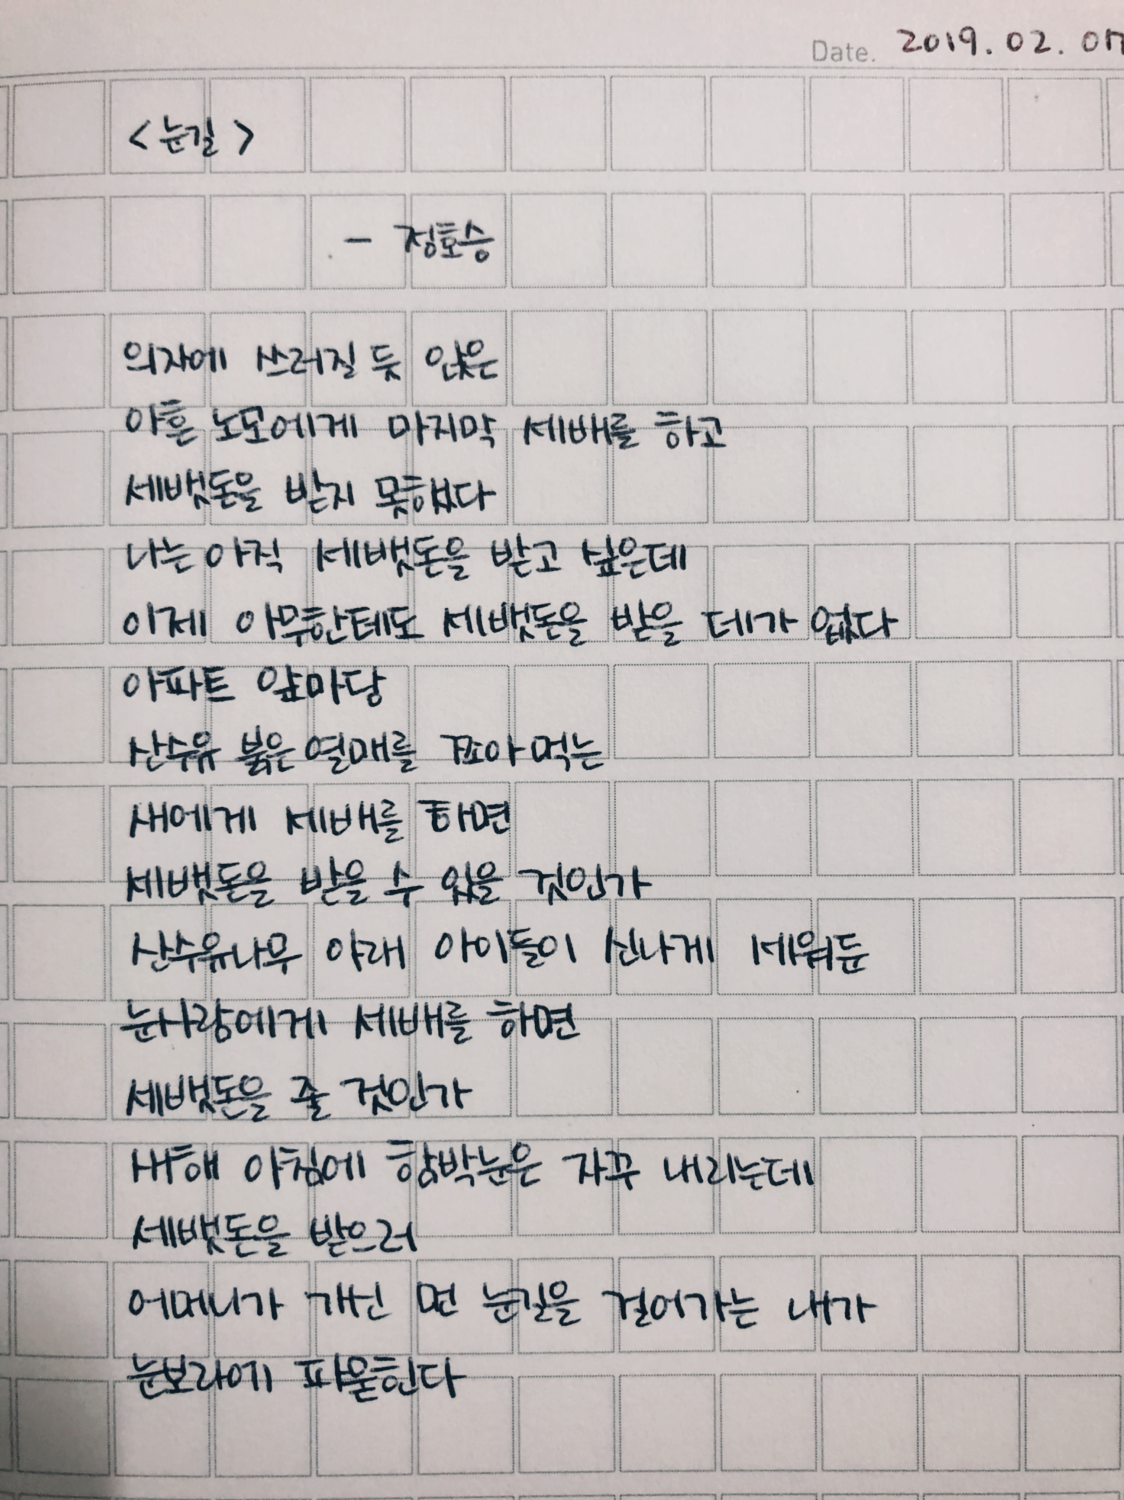 Date. 2019.02.07
<눈길>
- 정호승
의자에 쓰러질 듯 앉은
아흔 노모에게 마지막 세배를 하고
세뱃돈을 받지 못했다
나는 아직 세뱃돈을 받고 싶은데
이제 아무한테도 세뱃돈을 받을 데가 없다
아파트 앞마당
산수유 붉은 열매를 쪼아먹는
새에게 세배를 하면
세뱃돈을 받을 수 있을 것인가
산수유나무 아래 아이들이 신나게 세워둔
눈사람에게 세배를 하면
세뱃돈을 줄 것인가
새해 아침에 함박눈은 자꾸 내리는데
세뱃돈을 받으러
어머니가 가신 먼 눈길을 걸어가는 내가
눈보라에 파묻힌다